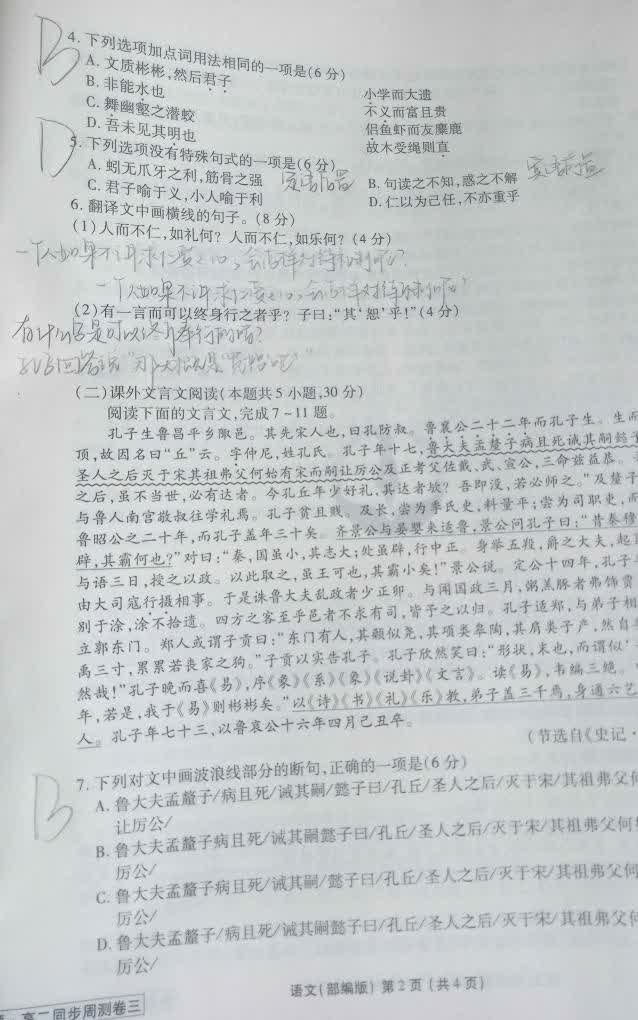 B
4. 下列选项加点词用法相同的一项是(6分)
A. 文质彬彬,然后君子 小学而大遗
B. 非能水也 不义而富且贵
C. 舞幽壑之潜蛟 侣鱼虾而友麋鹿
D. 吾未见其明也 故木受绳则直
D
5. 下列选项没有特殊句式的一项是(6分)
A. 蚓无爪牙之利,筋骨之强 定语后置 B. 句读之不知,惑之不解 宾语前置
C. 君子喻于义,小人喻于利 D. 仁以为己任,不亦重乎
6. 翻译文中画横线的句子。(8分)
(1)人而不仁,如礼何?人而不仁,如乐何?(4分)
一个人如果不讲求仁爱之心,会怎样对待礼制呢?
一个人如果不讲求仁爱之心,会怎样对待
(2)有一言而可以终身行之者乎?子曰:“其‘恕’乎!”(4分)
有什么
孔子回答说“那大概是
(二)课外文言文阅读(本题共5小题,30分)
阅读下面的文言文,完成7~11题。
孔子生鲁昌平乡陬邑。其先宋人也,曰孔防叔。鲁襄公二十二年而孔子生。生而
项,故因名曰“丘”云。字仲尼,姓孔氏。孔子年十七,鲁大夫孟釐子病且死诫其嗣懿子
圣人之后灭于宋其祖弗父何始有宋而嗣让厉公及正考父佐戴、武、宣公,三命兹益恭。
之后,虽不当世,必有达者。今孔丘年少好礼,其达者欤?吾即没,若必师之。”及釐子
与鲁人南宫敬叔往学礼焉。孔子贫且贱。及长,尝为季氏史,料量平;尝为司职吏,而
鲁昭公之二十年,而孔子盖年三十矣。齐景公与晏婴来适鲁,景公问孔子曰:“昔秦穆
辟,其霸何也?”对曰:“秦,国虽小,其志大;处虽辟,行中正。身举五羖,爵之大夫,起
与语三日,授之以政。以此取之,虽王可也,其霸小矣!”景公说。定公十四年,孔子
由大司寇行摄相事。于是诛鲁大夫乱政者少正卯。与闻国政三月,粥羔豚者弗饰贾
别于涂,涂不拾遗。四方之客至乎邑者不求有司,皆予之以归。孔子适郑,与弟子相
立郭东门。郑人或谓子贡曰:“东门有人,其颡似尧,其项类皋陶,其肩类子产,然自
禹三寸,累累若丧家之狗。”子贡以实告孔子。孔子欣然笑曰:“形状,末也,而谓似
然哉!”孔子晚而喜《易》,序《彖》《系》《象》《说卦》《文言》。读《易》,韦编三绝。
年,若是,我于《易》则彬彬矣。”以《诗》《书》《礼》《乐》教,弟子盖三千焉,身通六艺
人。孔子年七十三,以鲁哀公十六年四月己丑卒。
(节选自《史记·
B
7. 下列对文中画波浪线部分的断句,正确的一项是(6分)
A. 鲁大夫孟釐子/病且死/诫其嗣/懿子曰/孔丘/圣人之后/灭于宋/其祖弗父何
让厉公/
B. 鲁大夫孟釐子病且死/诫其嗣懿子曰/孔丘/圣人之后/灭于宋/其祖弗父何
厉公/
C. 鲁大夫孟釐子病且死/诫其嗣/懿子曰/孔丘/圣人之后/灭于宋/其祖弗父何
厉公/
D. 鲁大夫孟釐子/病且死/诫其嗣懿子曰/孔丘/圣人之后/灭于宋/其祖弗父何
厉公/
语文(部编版) 第2页(共4页)
高二同步周测卷三